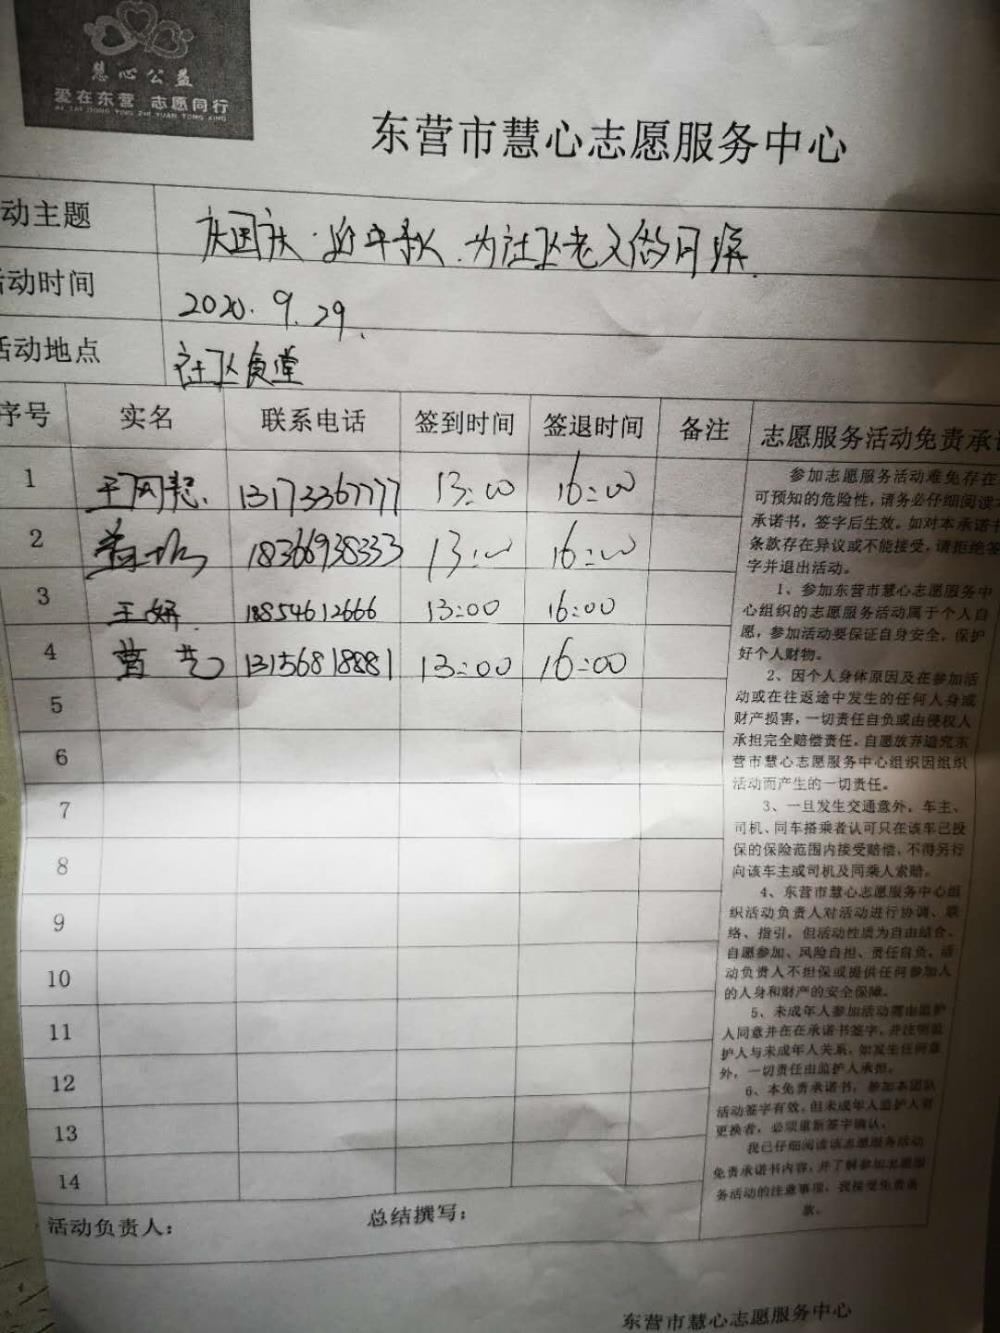 慧心公益
爱在东营 志愿同行
AI ZAI DONG YING ZHI YUAN TONG XING
东营市慧心志愿服务中心
动主题 庆国庆·迎中秋.为社区老人做月饼.
活动时间 2020.9.29.
活动地点 社区食堂
序号 实名 联系电话 签到时间 签退时间 备注 志愿服务活动免责承诺
1 王 13173367777 13:00 16:00
2 18366938333 13:00 16:00
3 王妍 18854612666 13:00 16:00
4 曹艺 13156818881 13:00 16:00
5
6
7
8
9
10
11
12
13
14
参加志愿服务活动难免存在
可预知的危险性,请务必仔细阅读
承诺书,签字后生效。如对本承诺书
条款存在异议或不能接受,请拒绝签
字并退出活动。
1、参加东营市慧心志愿服务中
心组织的志愿服务活动属于个人自
愿,参加活动要保证自身安全,保护
好个人财物。
2、因个人身体原因及在参加活
动或在往返途中发生的任何人身或
财产损害,一切责任自负或由侵权人
承担完全赔偿责任。自愿放弃追究东
营市慧心志愿服务中心组织因组织
活动而产生的一切责任。
3、一旦发生交通意外,车主、
司机、同车搭乘者认可只在该车已投
保的保险范围内接受赔偿,不得另行
向该车主或司机及同乘人索赔。
4、东营市慧心志愿服务中心组
织活动负责人对活动进行协调、联
络、指引。但活动性质为自由结合、
自愿参加、风险自担、责任自负。活
动负责人不担保或提供任何参加人
的人身和财产的安全保障。
5、未成年人参加活动需由监护
人同意并在在承诺书签字,并注明监
护人与未成年人关系,如发生任何意
外,一切责任由监护人承担。
6、本免责承诺书,参加本团队
活动签字有效,但未成年人监护人有
更换者,必须重新签字确认。
我已仔细阅读该志愿服务活动
免责承诺书内容,并了解参加志愿服
务活动的注意事项,我接受免责条
款。
活动负责人: 总结撰写:
东营市慧心志愿服务中心